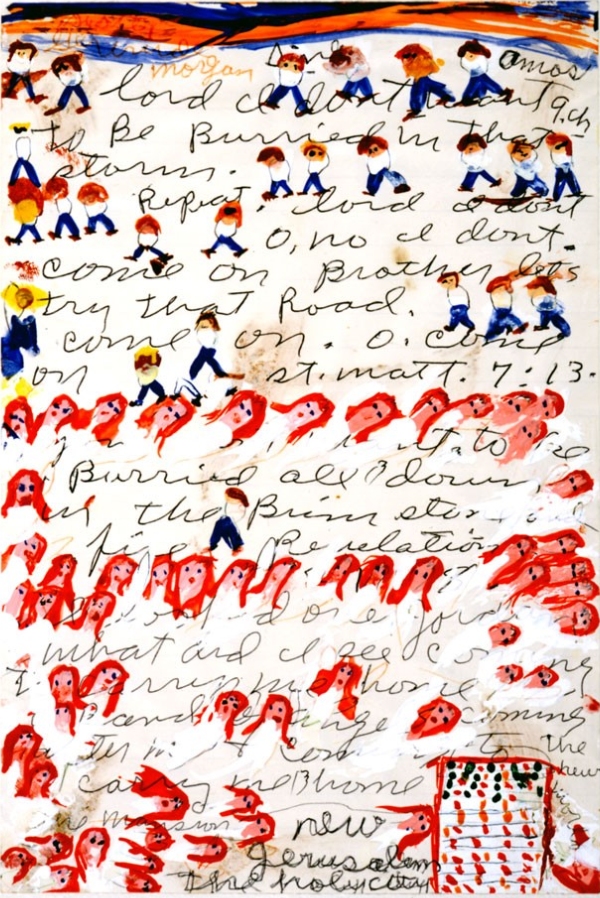 morgan Sing amos
lord I dont want 9,ch
to Be Burried in that
storm.
Repeat. lord I dont
O, no I dont.
come on Brother lets
try that Road.
come on. O. come
on st. matt. 7:13.
to Be
Burried all down
in the Brimstone and
fire Revelation
what did I see coming
carry me home
Band angels coming
after me coming to
carry me home
the new
the mansion new
Jerusalem
the holy city